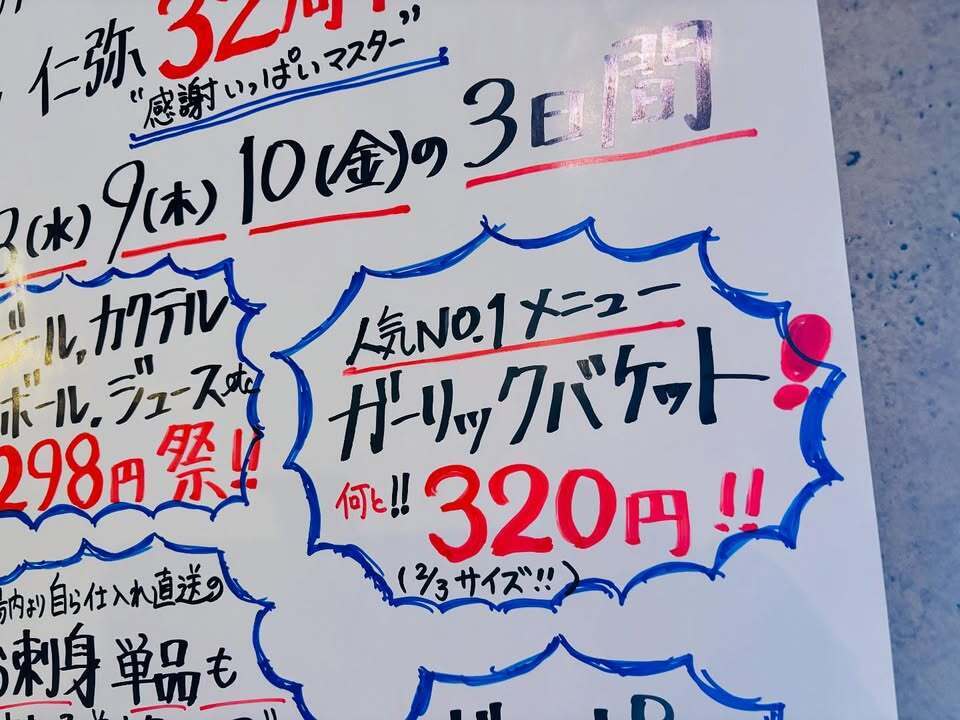 仁弥 32周年
"感謝いっぱいマスター"
8(水) 9(木) 10(金)の3日間
ビール,カクテル
ボール.ジュースetc
298円祭!!
人気NO.1メニュー
ガーリックバケット!
何と!! 320円!!
(2/3サイズ!!)
場内より自ら仕入れ直送の
お刺身単品も